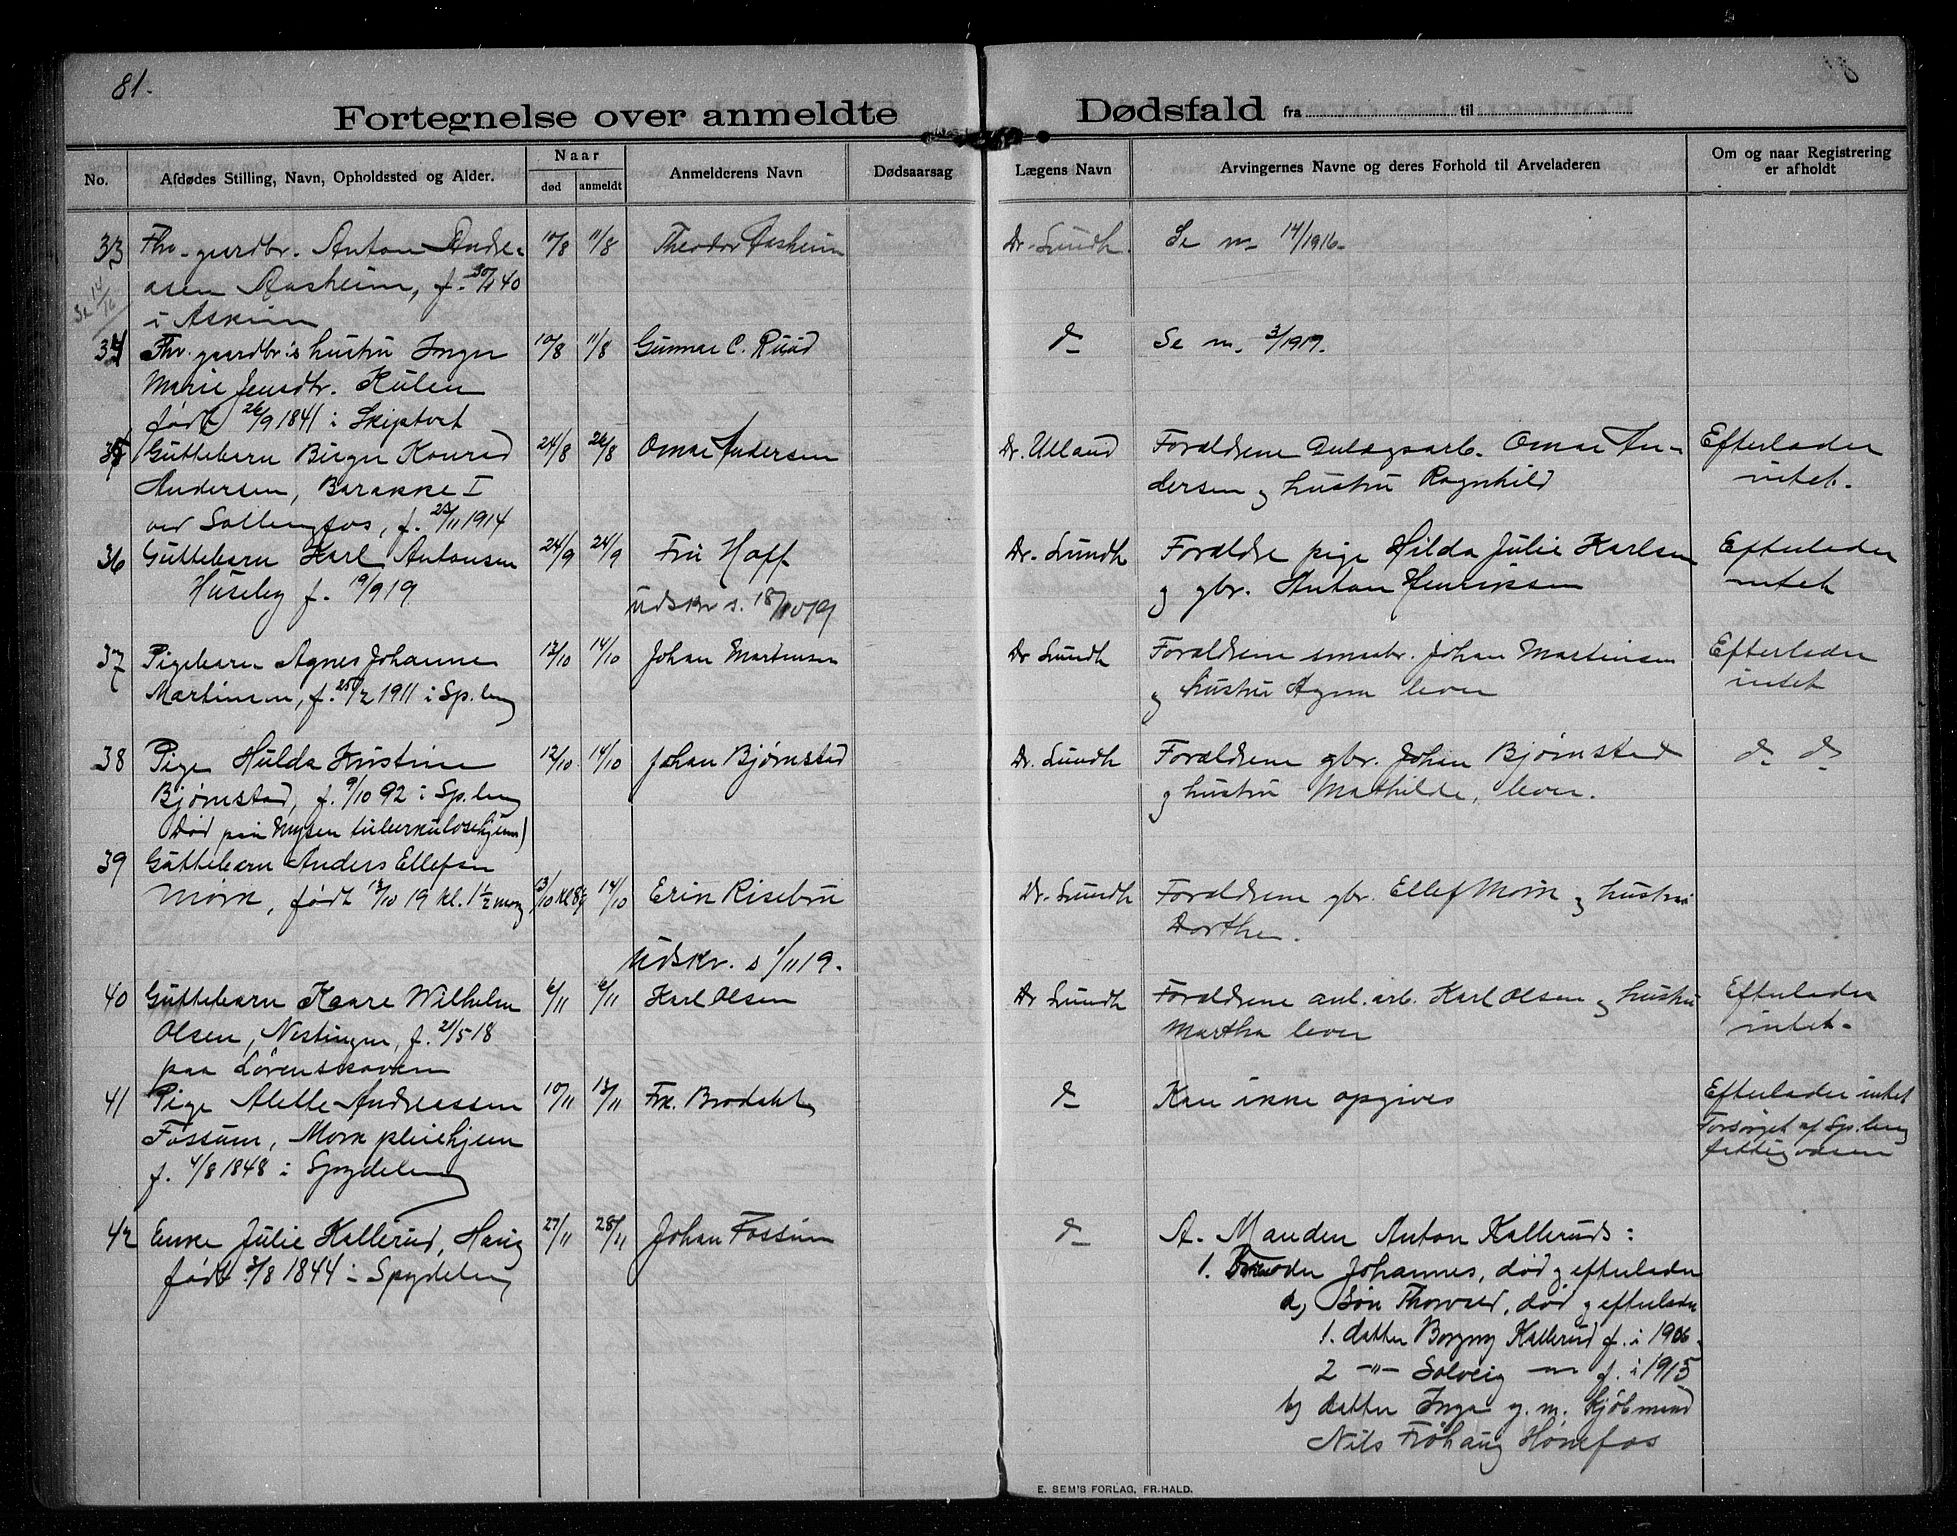 81.
Fortegnelse over anmeldte Dødsfald fra til
No.
Afdødes Stilling, Navn, Opholdssted og Alder.
Naar
død
anmeldt
Anmelderens Navn
Dødsaarsag
Lægens Navn
Arvingernes Navne og deres Forhold til Arveladeren
Om og naar Registrering
er afholdt
33 Fhv. gaardbr. Anton Andre- 10/8 11/8 Theodor Aasheim Dr. Lundh. Se nr 14/1916.
asen Aasheim, f. 30/1 40
Se 14/16
i Askim
34 Fhv. gaardbr.s hustru Inger 10/8 11/8 Gunnar C. Ruud do Se nr. 3/1919.
Marie Jensdtr. Kulen
født 26/9 1841 i Skiptvet
35 Guttebarn Birger Konrad 24/8 26/8 Omar Andersen Dr. Ulland Forældrene anlægsarb. Omar An- Efterlader
Andersen, Barakke I dersen og hustru Ragnhild intet.
ved Solbergfos, f. 23/11 1914
36 Guttebarn Karl Antonsen 24/9 24/9 Fru Hoff Dr. Lundh Forældre pige Hilda Julie Karlsen Efterlader
Huseby f. 19/9 19 og gbr. Anton Henriksen intet
Udskr s. 18/10 19
37 Pigebarn Agnes Johanne 12/10 14/10 Johan Martinsen Dr Lundh Forældrene smaabr. Johan Martinsen Efterlader
Martinsen, f. 25/2 1911 i Sp.berg og hustru Agna lever intet
38 Pige Hulda Kristine 12/10 14/10 Johan Bjørnstad Dr. Lundh Forældrene gbr. Johan Bjørnstad do do
Bjørnstad, f. 9/10 92 i Sp.berg og hustru Mathilde, lever.
Død paa Mysen tuberkulosehjem)
39 Guttebarn Anders Ellefsen
Mørk, født 13/10 19 kl. 1 1/2 morg 13/10 kl 8 14/10 Erik Risebro Dr. Lundh Forældrene gbr. Ellef Mørk og hustru
Dorthe.
Udskr. s 1/11 19.
40 Guttebarn Kaare Wilhelm 6/11 6/11 Karl Olsen Dr Lundh Forældrene anl. arb. Karl Olsen og hustru Efterlader
Olsen, Nestingen, f. 21/5 18 Martha lever intet.
paa Lørenskoven
41 Pige Alette Andreassen 10/11 13/11 Frk. Brodahl do Kan ikke opgives Efterlader intet
Fossum, Mørk pleiehjem Forsørget af Sp.berg
f. 4/8 1848 i Spydeberg fattigvæsen
42 Enke Julie Kallerud, Haug 27/11 28/11 Johan Fossum do A. Manden Anton Kalleruds:
født 3/8 1844 i Spydeberg 1. Broder Johannes, død og efterlader
a) Søn Thorvald, død og efterlader
1. datter Borgny Kallerud f. i 1906.
2 —"— Solveig — f. i 1915
b) datter Inga g. m. kjøbmand
Nils Frøhaug Hønefos
E. SEM'S FORLAG, FR.HALD.